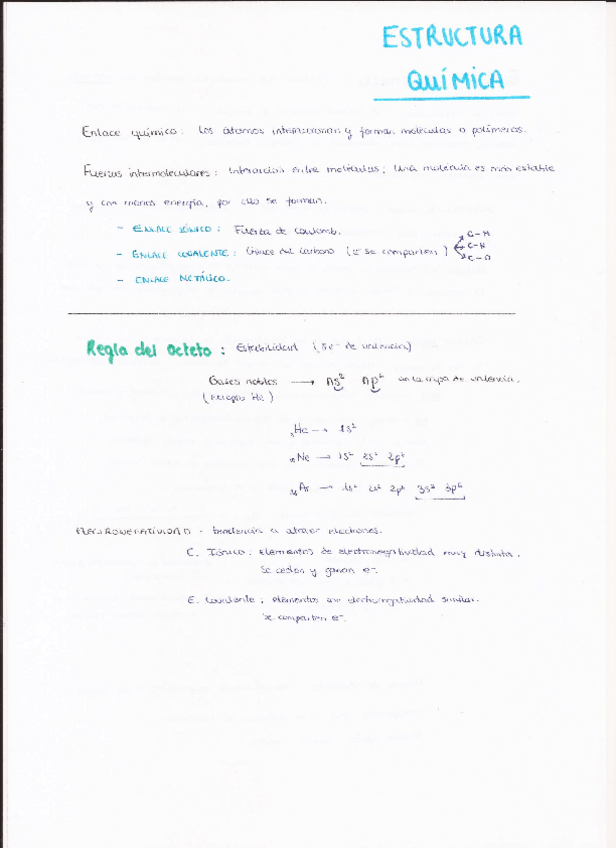 ESTRUCTURA
QUÍMICA
Enlace químico: Los átomos interaccionan y forman moléculas o polímeros.
Fuerzas intermoleculares: Interacción entre moléculas; una molécula es más estable
y con menos energía, por ello se forman.
- ENLACE IÓNICO: Fuerza de Coulomb.
- ENLACE COVALENTE: Enlace del carbono (e⁻ se comparten)
C-H
C-N
C-O
- ENLACE METÁLICO.
Regla del Octeto: Estabilidad (8e⁻ de valencia)
Gases nobles → ns² np⁶ en la capa de valencia.
(excepto He)
₂He → 1s²
₁₀Ne → 1s² 2s² 2p⁶
₁₈Ar → 1s² 2s² 2p⁶ 3s² 3p⁶
ELECTRONEGATIVIDAD - tendencia a atraer electrones.
E. Iónico: elementos de electronegatividad muy distinta.
Se ceden y ganan e⁻
E. Covalente: elementos con electronegatividad similar.
Se comparten e⁻